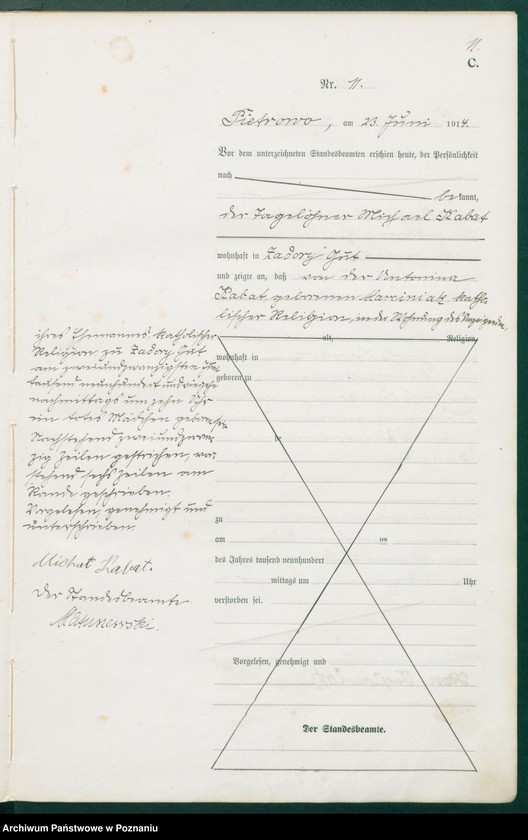 11.
C.
Nr. 11.
Pietrowo, am 23. Juni 1914.
Vor dem unterzeichneten Standesbeamten erschien heute, der Persönlichkeit
nach
bekannt,
der Tagelöhner Michael Kabat
wohnhaft in Zadory Gut
und zeigte an, daß von der Antonina
Kabat geborenen Marciniak katho-
lischer Religion, in der Wohnung des Anzeigenden,
alt, Religion,
wohnhaft in
geboren zu
zu
am ten
des Jahres tausend neunhundert
mittags um Uhr
verstorben sei.
Vorgelesen, genehmigt und
Der Standesbeamte.
ihres Ehemannes katholischer
Religion zu Zadory Gut
am zweiundzwanzigsten Juni
tausend neunhundert und vierzehn
nachmittags um zehn Uhr
ein totes Mädchen geboren sei.
Nachstehend zweiundzwan-
zig Zeilen gestrichen, vor-
stehend sechs Zeilen am
Rande geschrieben.
Vorgelesen, genehmigt und
unterschrieben.
Michał Kabat.
Der Standesbeamte
Archiwum Państwowe w Poznaniu